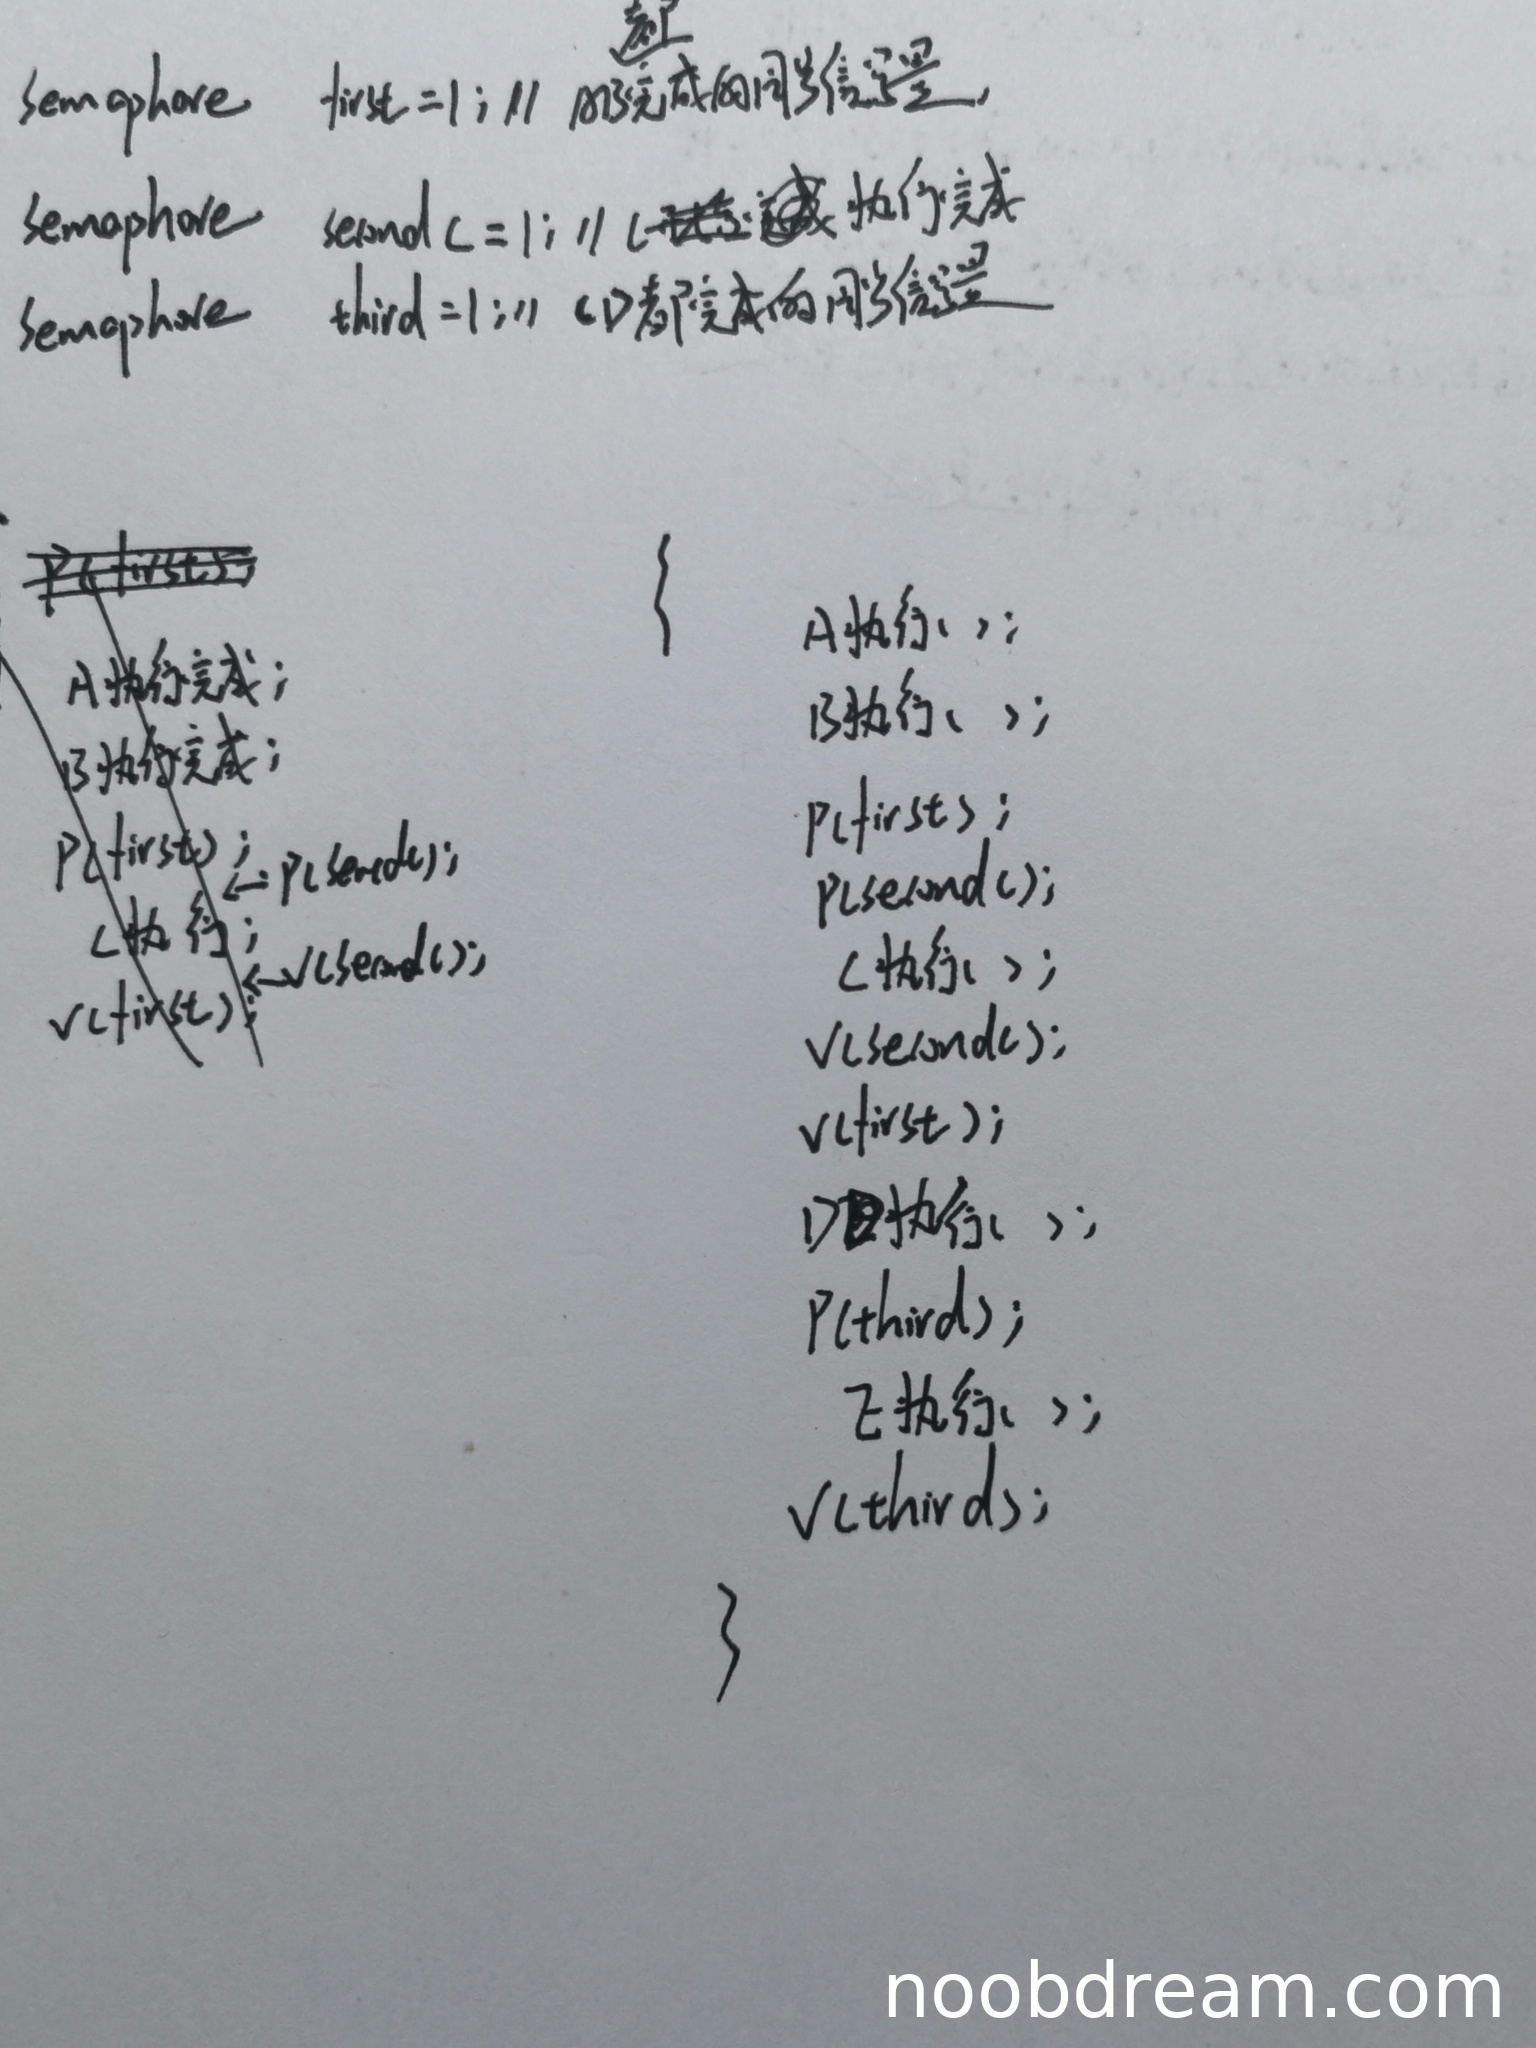 都
semaphore first=1; // AB完成的同步信号量,
semaphore secondC=1; // C 执行完成
semaphore third=1; // CD都完成的同步信号量
P(first);
A执行完成;
B执行完成;
P(first);
←P(secondC);
C执行;
←V(secondC);
V(first);
{
A执行( );
B执行( );
P(first);
P(secondC);
C执行( );
V(secondC);
V(first);
D执行( );
P(third);
E执行( );
V(third);
}
noobdream.com